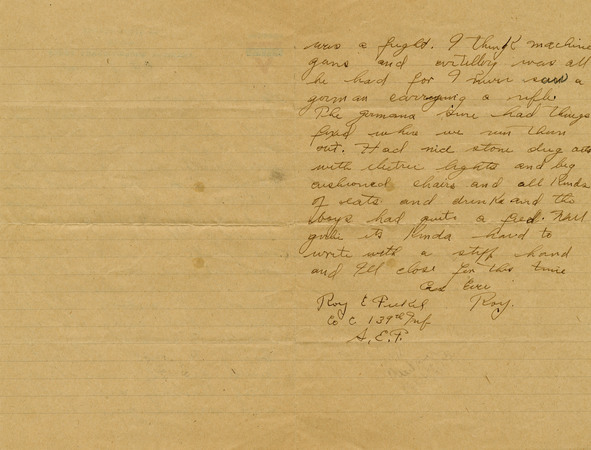 was a fright. I think machine
guns and artillery was all
he had for I never saw a
german carrying a rifle.
The germans sure had things
fixed when we run them
out. Had nice stone dug outs
with electric lights and big
cushioned chairs and all kinds
of eats and drinks and the
boys had quite a feed. Well
its kinda hard to
write with a stiff hand
and I'll close for this time
As Ever
Roy E Roy.
Co C 139th Inf
A.E.F.